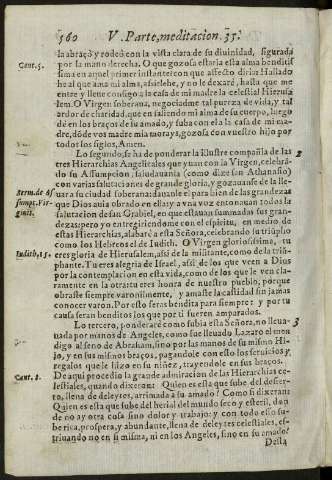 160 V. Parte, meditacion. 35.
la abraçó y rodeó con la vista clara de su diuinidad, figurada
Cant. 5. por la mano derecha. O que gozosa estaria esta alma benditis
sima en aquel primer instante! con que affecto diria: Hallado
he al que ama mi alma, asirlehe, y no le dexaré, hasta que me
entre y lleue consigo a la casa de mi madre la celestial Hierusa
lem. O Virgen soberana, negociadme tal pureza de vida, y tal
ardor de charidad, que en saliendo mi alma de su cuerpo, luego
dé en los braços de su amado, y suba con el a la casa de mi ma-
dre, dõde vos madre mia morays, gozosa con vuestro hijo por
todos los siglos, Amen.
Lo segundo, se ha de ponderar la illustre compañia de las 2
tres Hierarchias Angelicales que yuan con la Virgen, celebrã-
do su Assumpcion, saludauanla (como dize san Athanasio)
con varias salutaciones de grande gloria, y gozauanse de lle-
Serm. de Assumpt. Virginis. uar a su ciudad soberana
que Dios auia obrado en ella: y a vna voz entonauan todos la
salutacion de san Gabriel, en que estauan summadas sus gran-
dezas: pero yo entregiriendome con el espiritu, en medio de
estas Hierarchias, alabaré a esta Señora, celebrando su triũpho
como los Hebreos el de Iudith. O Virgen gloriosissima, tu
Iudith, 15. eres gloria de Hierusalem, assi de la militante, como de la triũ-
phante. Tu eres alegria de Israel, assi de los que veen a Dios
por la contemplacion en esta vida, como de los que le ven cla-
ramente en la otra: tu eres honra de nuestro pueblo, porque
obraste siempre varonilmente, y amaste la castidad sin jamas
conocer varon. Por esto seras bendita para siempre: y por tu
causa seran benditos los que por ti fueren amparados.
Lo tercero, ponderaré como subia esta Señora, no lleua- 3
nada por manos de Angeles, como fue lleuado Lazaro el men-
digo al seno de Abraham, sino por las manos de su mismo Hi-
jo, y en sus mismos braços, pagandole con esto los seruicios, y
regalos que le hizo en su niñez, trayendole en sus braços.
De aqui procedio la grande admiracion de las Hierarchias ce-
Cant. 8. lestiales, quando dixeron: Quien es esta que sube del desier-
to, llena de deleytes, arrimada a su amado? Como si dixeran:
Quien es esta que sube del herial del mundo seco y esteril, don
de no ay otra cosa sino dolor y trabajo: y con todo esso su-
be rica, prospera, y abundante, llena de deleytes celestiales, es-
triuando no en si misma, ni en los Angeles, sino en su amado?
Desta